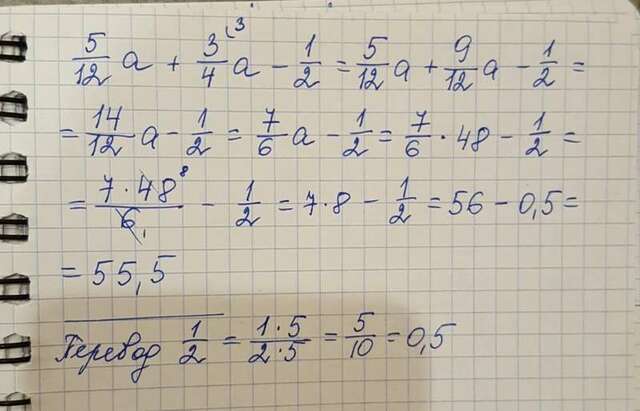 5/12 a + 3/4 (³ a - 1/2 = 5/12 a + 9/12 a - 1/2 =
= 14/12 a - 1/2 = 7/6 a - 1/2 = 7/6 · 48 - 1/2 =
= 7 · 48 ⁸ / 6 ₁ - 1/2 = 7 · 8 - 1/2 = 56 - 0,5 =
= 55,5
Перевод 1/2 = 1·5/2·5 = 5/10 = 0,5